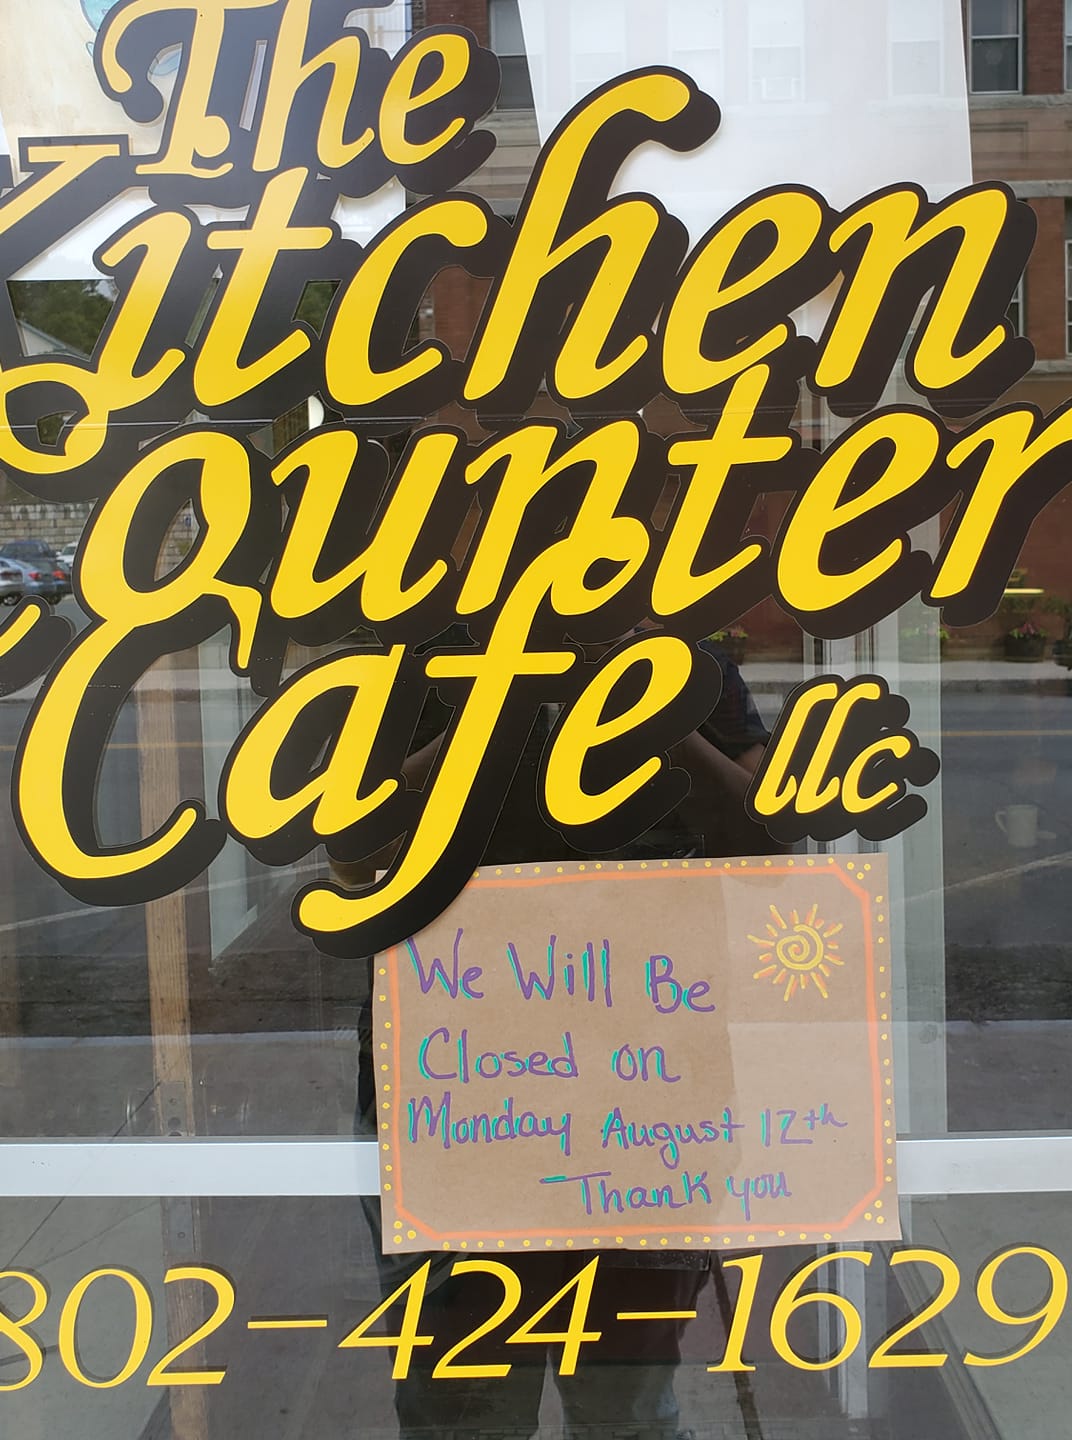 The
Kitchen
Counter
Cafe llc
We Will Be
Closed on
Monday August 12th
Thank you
802-424-1629